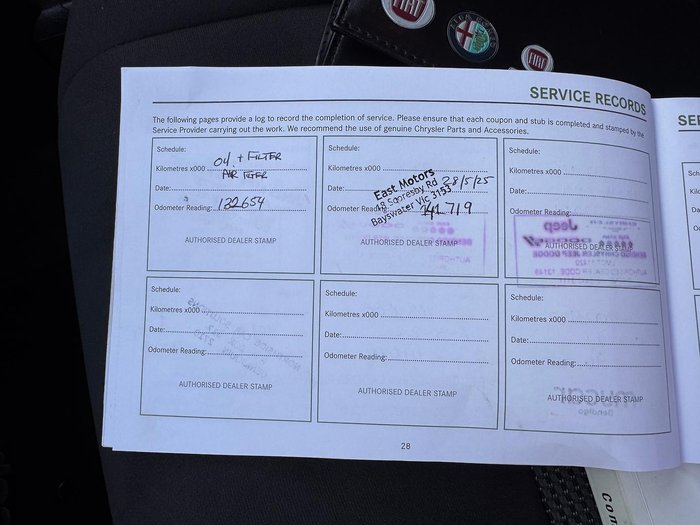 FIAT
ALFA ROMEO
FIAT
SERVICE RECORDS
The following pages provide a log to record the completion of service. Please ensure that each coupon and stub is completed and stamped by the
Service Provider carrying out the work. We recommend the use of genuine Chrysler Parts and Accessories.
Schedule:
OIL + FILTER
Kilometres x000
AIR FILTER
Date:
Odometer Reading: 132654
AUTHORISED DEALER STAMP
Schedule:
Kilometres x000
Date: 28/5/25
Odometer Reading: 141719
East Motors
Scoresby Rd
Bayswater Vic 3153
AUTHORISED DEALER STAMP
Schedule:
Kilometres x000
Date:
Odometer Reading:
AUTHORISED DEALER STAMP
Jeep
BENDIGO CHRYSLER JEEP DODGE
Schedule:
Kilometres x000
Date:
Odometer Reading:
AUTHORISED DEALER STAMP
Schedule:
Kilometres x000
Date:
Odometer Reading:
AUTHORISED DEALER STAMP
Schedule:
Kilometres x000
Date:
Odometer Reading:
AUTHORISED DEALER STAMP
Bendigo
28
SE
Sch
Kil
Da
Od
Con